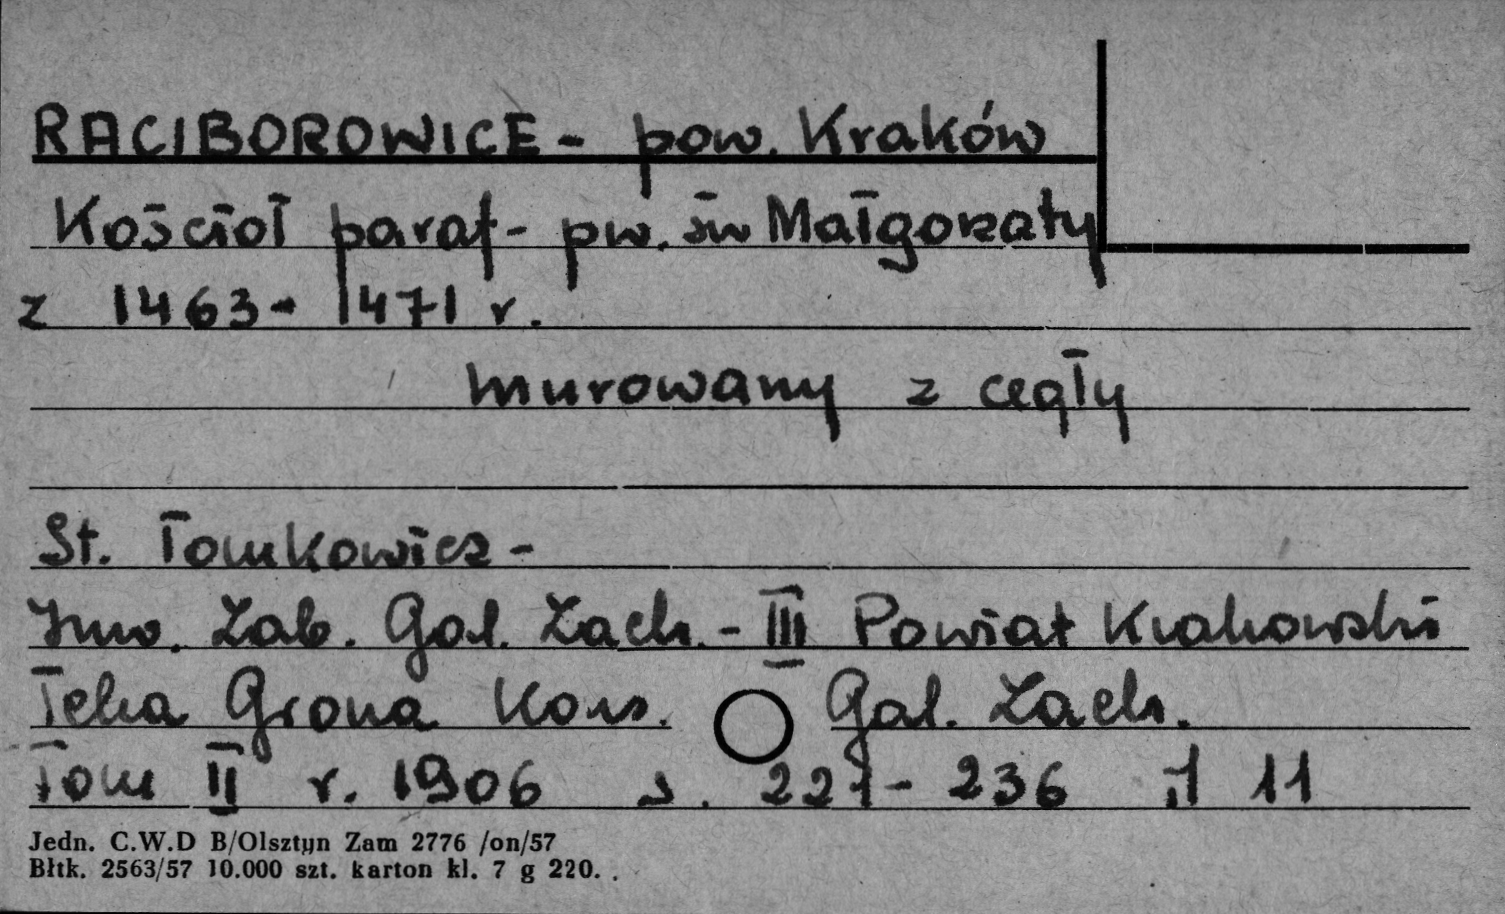 RACIBOROWICE - pow. Kraków
Kościół paraf- pw. św Małgorzaty
z 1463- 1471 r.
murowany z cegły
St. Tomkowicz -
Inw. Zab. Gal. Zach. - III Powiat Krakowski
Teka Grona Kons. Gal. Zach.
Tom II r. 1906 s. 221- 236 il 11
Jedn. C.W.D B/Olsztyn Zam 2776 /on/57
Błtk. 2563/57 10.000 szt. karton kl. 7 g 220. .